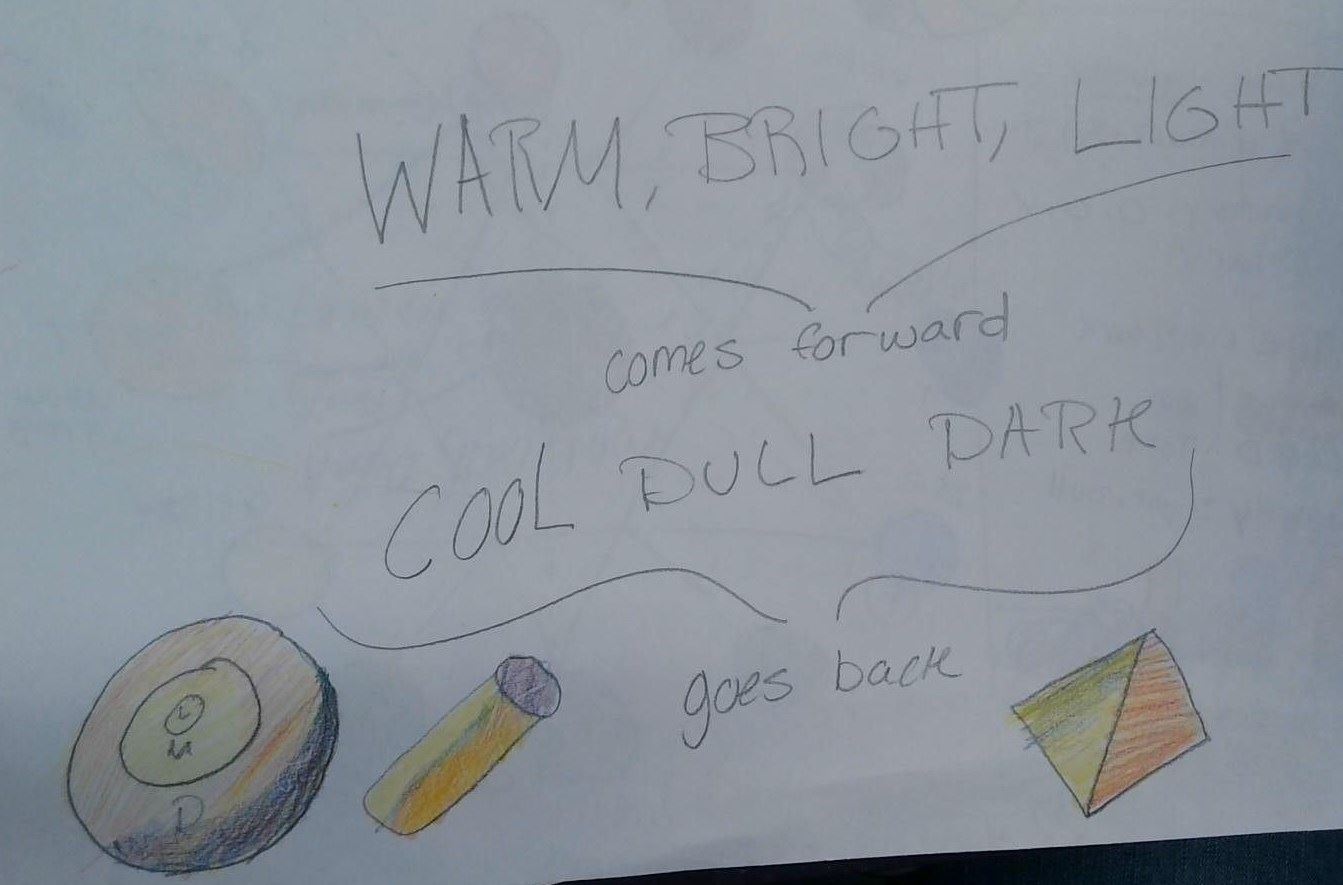 WARM, BRIGHT, LIGHT
comes forward
COOL DULL DARK
goes back
L
M
D